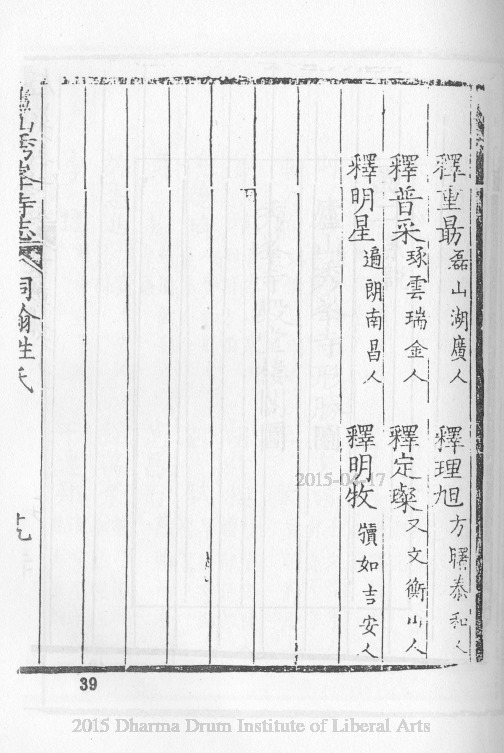 釋重勗 磊山湖廣人 釋理旭 方曙泰和人
釋普采 琢雲瑞金人 釋定璨 又文衡山人
釋明星 遍朗南昌人 釋明牧 犢如吉安人
廬山秀峯寺志 詞翰姓氏
39
2015-04-17
2015 Dharma Drum Institute of Liberal Arts